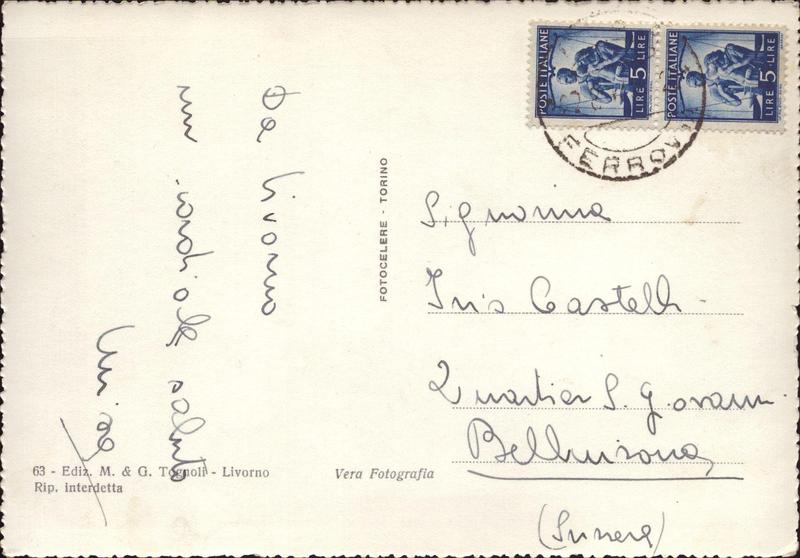 POSTE ITALIANE
LIRE 5
POSTE ITALIANE
LIRE 5
FERROVIA
Da Livorno
un cordiale saluto
FOTOCELERE - TORINO
Signorina
Iris Castelli
Quartier S. Giovanni
Bellinzona
(Svizzera)
63 - Ediz. M. & G. Tognoli - Livorno
Rip. interdetta
Vera Fotografia